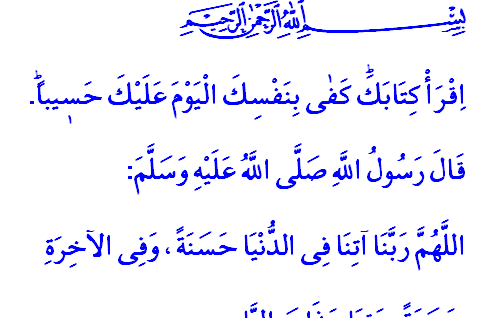 بِسْمِ اللهِ الرَّحْمٰنِ الرَّحِيمِ
اِقْرَأْ كِتَابَكَۜ كَفٰى بِنَفْسِكَ الْيَوْمَ عَلَيْكَ حَسٖيباًۜ.
قَالَ رَسُولُ اللَّهِ صَلَّى اللَّهُ عَلَيْهِ وَسَلَّمَ:
اللَّهُمَّ رَبَّنَا آتِنَا فِى الدُّنْيَا حَسَنَةً، وَفِى الآخِرَةِ